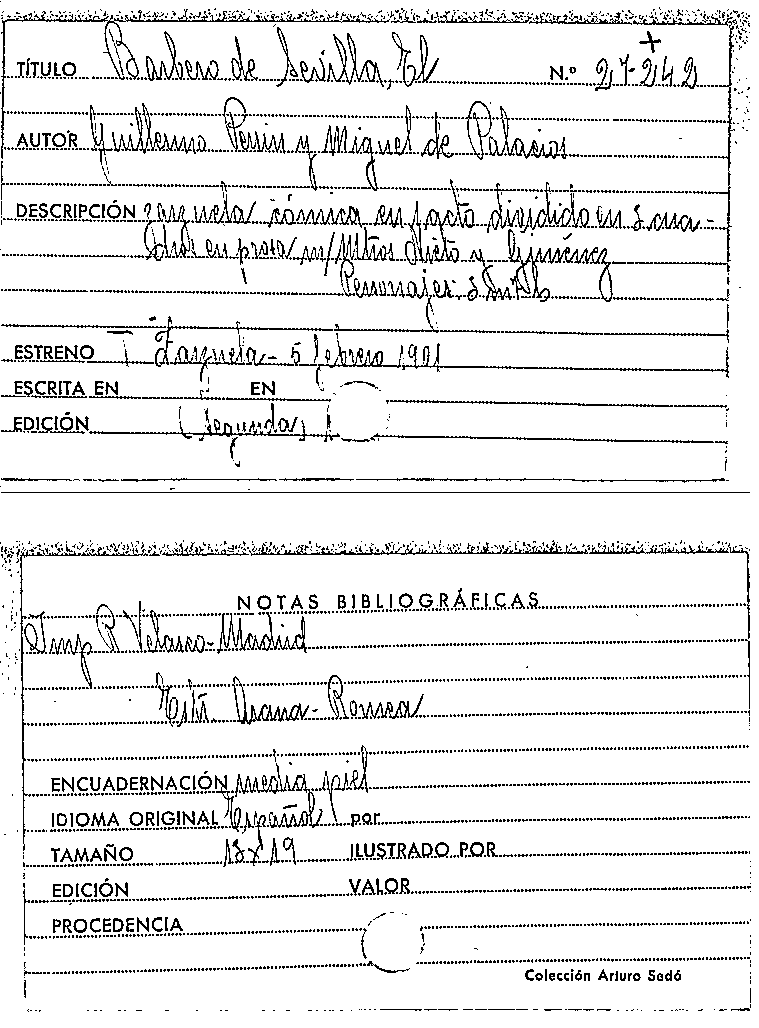 TÍTULO Barbero de Sevilla, El N.º 27-242
AUTOR Guillermo Perrin y Miguel de Palacios
DESCRIPCIÓN zarzuela cómica en 1 acto dividido en 3 cua-
dros en prosa m/Mtros Nieto y Giménez
Personajes:
ESTRENO T Zarzuela - 5 febrero 1901
ESCRITA EN EN
EDICIÓN (Segunda)
NOTAS BIBLIOGRÁFICAS
Imp R Velasco - Madrid
Arana - Romea
ENCUADERNACIÓN media piel
IDIOMA ORIGINAL Español por
TAMAÑO 13x19 ILUSTRADO POR
EDICIÓN VALOR
PROCEDENCIA
Colección Arturo Sedó